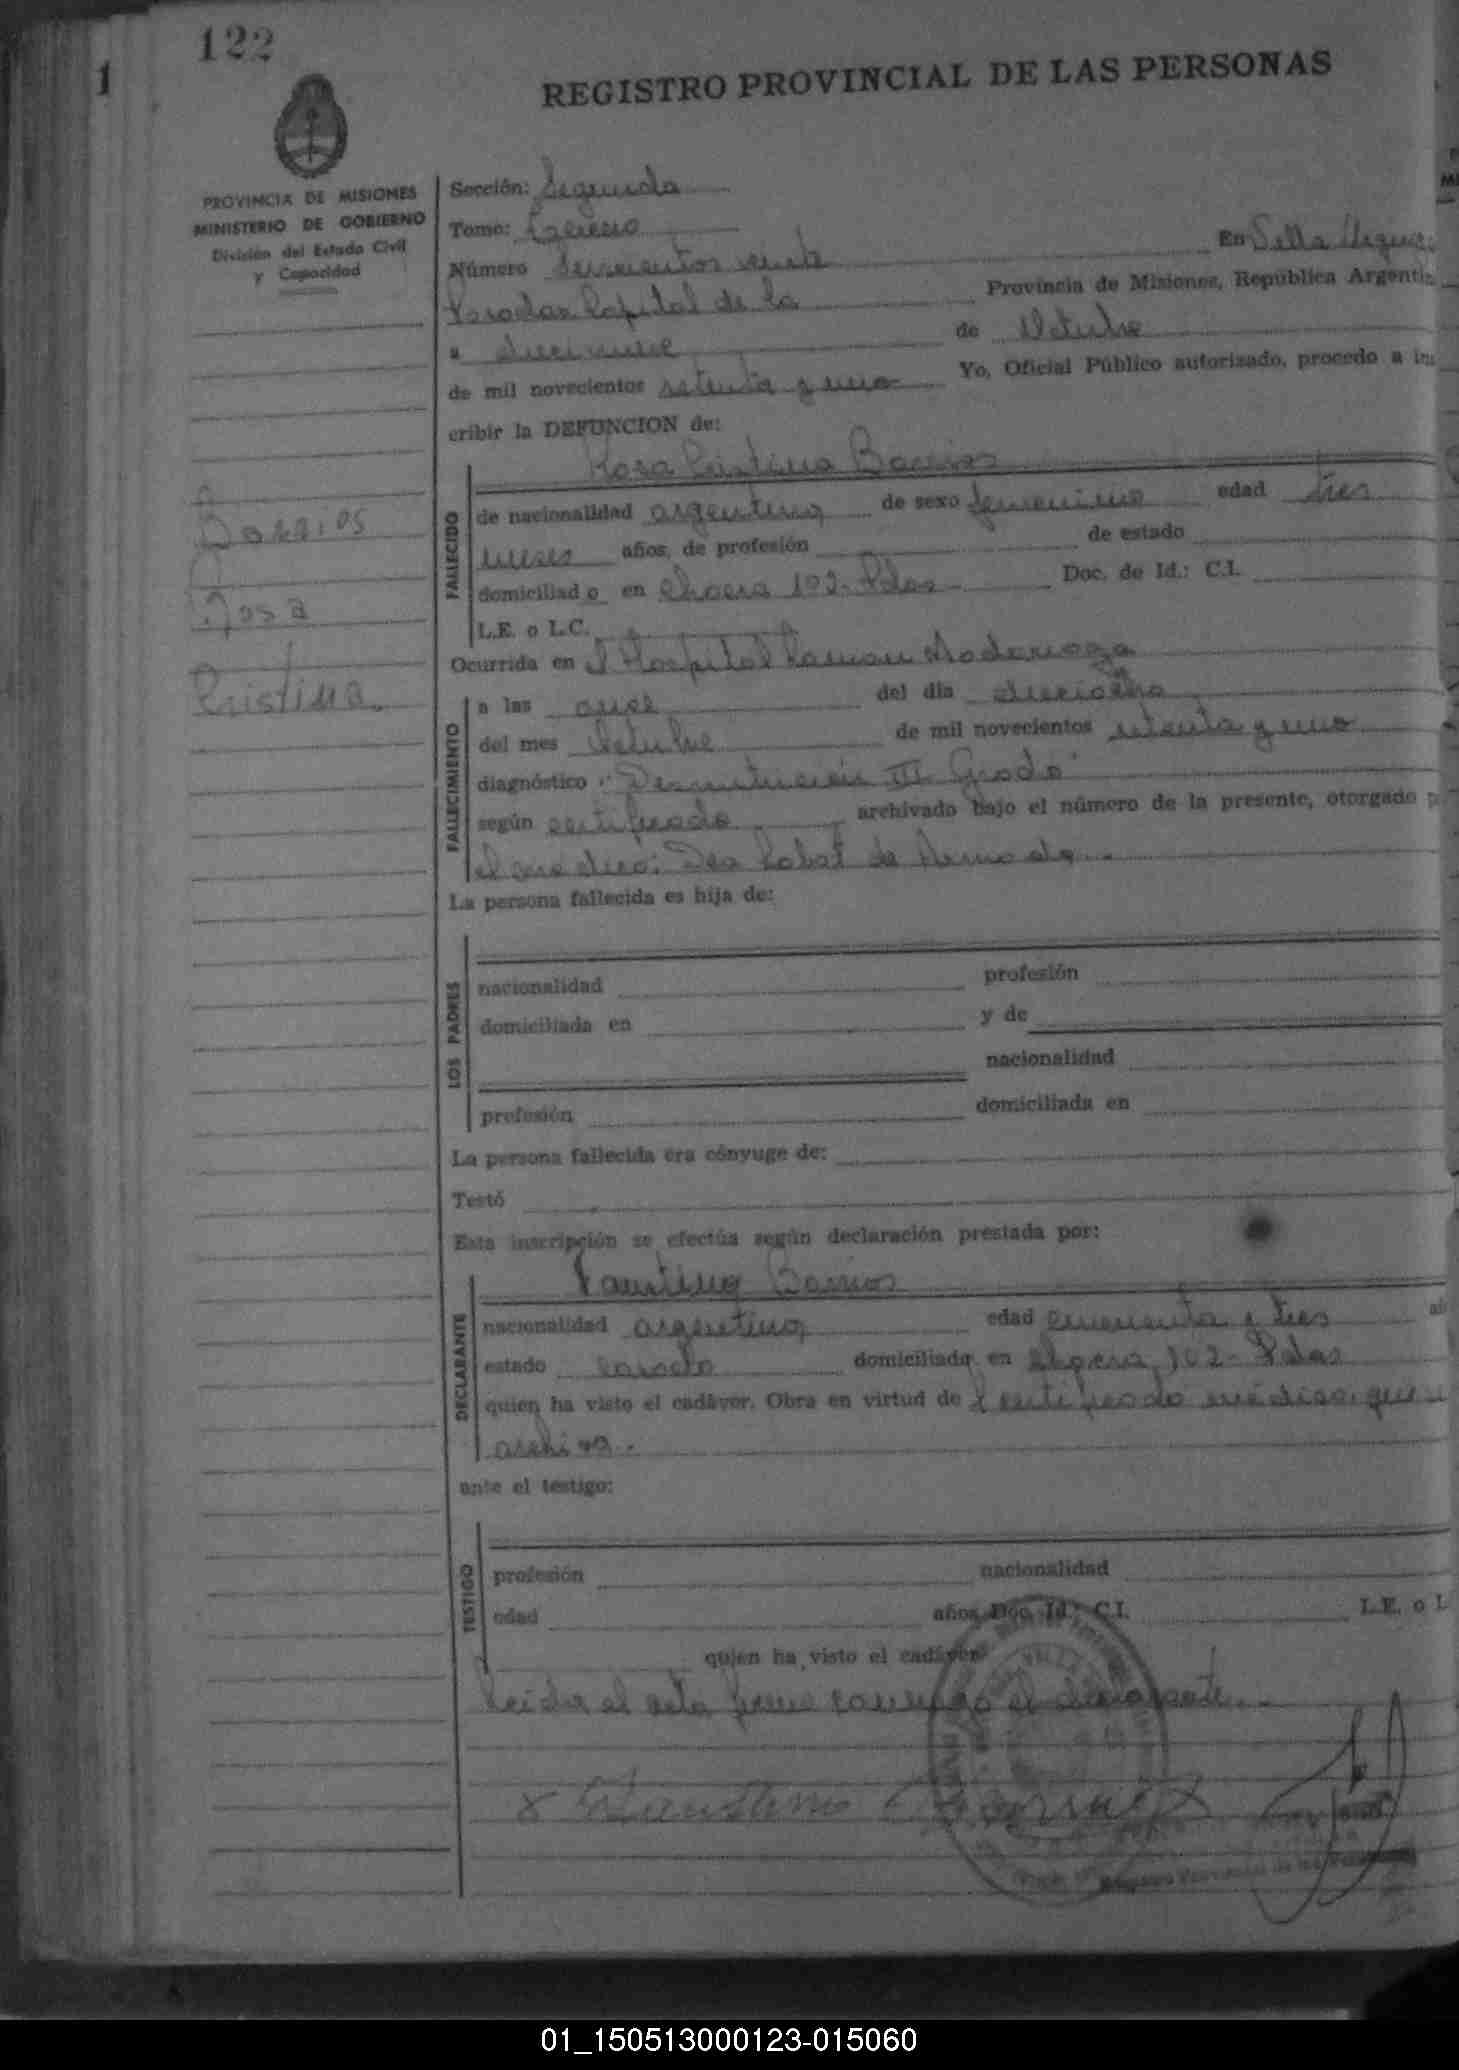 122
1
REGISTRO PROVINCIAL DE LAS PERSONAS
PROVINCIA DE MISIONES
MINISTERIO DE GOBIERNO
División del Estado Civil
y Capacidad
Sección: Segunda
Tomo: Tercero
En Villa
Número
Posadas Capital de la Provincia de Misiones, República Argentin
a diecinueve de Octubre
de mil novecientos setenta y uno Yo, Oficial Público autorizado, procedo a ins
cribir la DEFUNCION de:
Rosa Cristina Barrios
FALLECIDO
de nacionalidad argentina de sexo femenino edad tres
meses años, de profesión de estado
domiciliado en Chacra 102-Pdas Doc. de Id.: C.I.
L.E. o L.C.
Barrios
Rosa
Cristina.
Ocurrida en el Hospital Ramon Madariaga
FALLECIMIENTO
a las once del día dieciocho
del mes Octubre de mil novecientos setenta y uno
diagnóstico "Desnutrición III Grado"
según certificado archivado bajo el número de la presente, otorgado p
el médico: Dra de
La persona fallecida es hija de:
LOS PADRES
nacionalidad profesión
domiciliada en y de
nacionalidad
profesión domiciliada en
La persona fallecida era cónyuge de:
Testó
Esta inscripción se efectúa según declaración prestada por:
Faustino Barrios
DECLARANTE
nacionalidad argentino edad cincuenta y tres añ
estado casado domiciliado en chacra 102- Pdas
quien ha visto el cadáver. Obra en virtud de certificado médico que
archiva.
ante el testigo:
TESTIGO
profesión nacionalidad
edad años, Doc. Id.: C.I. L.E. o L
quien ha visto el cadáver
Leída el acta firma conmigo el declarante.
x Faustino Barrios
01_150513000123-015060